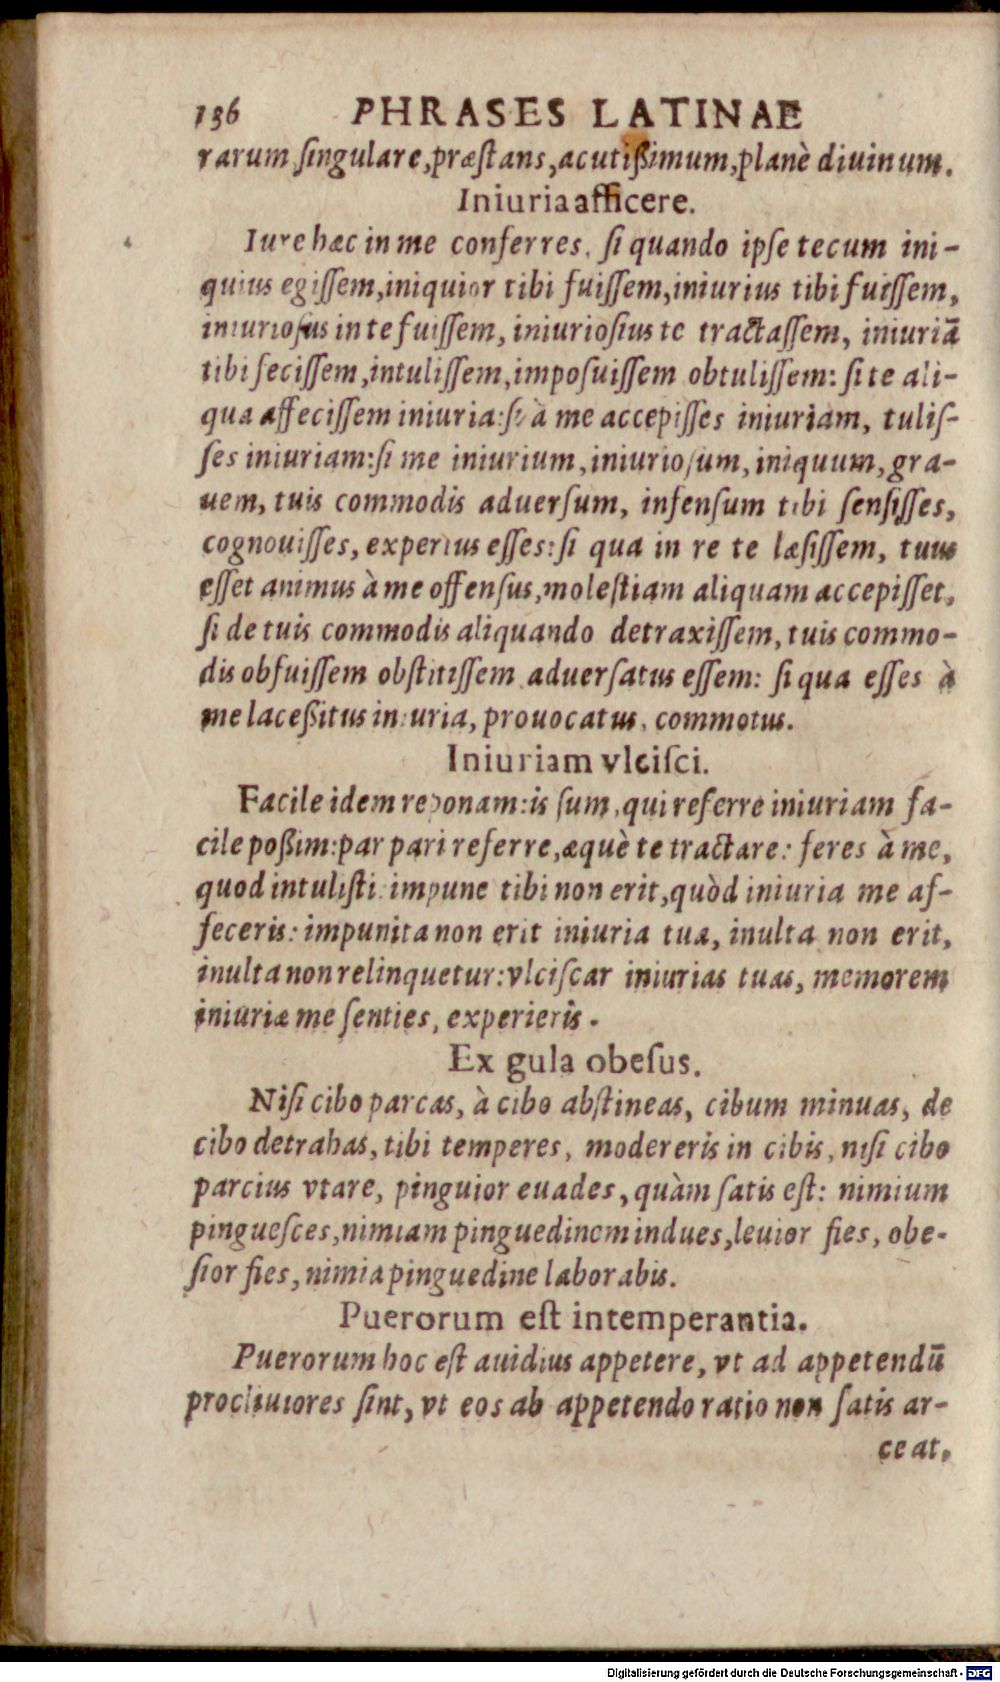 136 PHRASES LATINAE
rarum, ſingulare, præſtans, acutißimum, planè diuinum.
Iniuria afficere.
Iure hæc in me conferres, ſi quando ipſe tecum ini-
quius egiſſem, iniquior tibi fuiſſem, iniurius tibi fuiſſem,
iniurioſus in te fuiſſem, iniurioſius te tractaſſem, iniuriã
tibi feciſſem, intuliſſem, impoſuiſſem obtuliſſem: ſi te ali-
qua affeciſſem iniuria: ſi à me accepiſſes iniuriam, tuliſ-
ſes iniuriam: ſi me iniurium, iniurioſum, iniquum, gra-
uem, tuis commodis aduerſum, infenſum tibi ſenſiſſes,
cognouiſſes, expertus eſſes: ſi qua in re te læſiſſem, tuus
eſſet animus à me offenſus, moleſtiam aliquam accepiſſet,
ſi de tuis commodis aliquando detraxiſſem, tuis commo-
dis obfuiſſem obſtitiſſem aduerſatus eſſem: ſi qua eſſes à
me laceßitus iniuria, prouocatus, commotus.
Iniuriam vlciſci.
Facile idem reponam: is ſum, qui referre iniuriam fa-
cile poßim: par pari referre, æquè te tractare: feres à me,
quod intuliſti: impune tibi non erit, quòd iniuria me af-
feceris: impunita non erit iniuria tua, inulta non erit,
inulta non relinquetur: vlciſcar iniurias tuas, memorem
iniuriæ me ſenties, experieris.
Ex gula obeſus.
Niſi cibo parcas, à cibo abſtineas, cibum minuas, de
cibo detrahas, tibi temperes, modereris in cibis, niſi cibo
parcius vtare, pinguior euades, quàm ſatis eſt: nimium
pingueſces, nimiam pinguedinem indues, leuior fies, obe-
ſior fies, nimia pinguedine laborabis.
Puerorum eſt intemperantia.
Puerorum hoc eſt auidius appetere, vt ad appetendũ
procliuiores ſint, vt eos ab appetendo ratio non ſatis ar-
ceat,
Digitalisierung gefördert durch die Deutsche Forschungsgemeinschaft - DFG